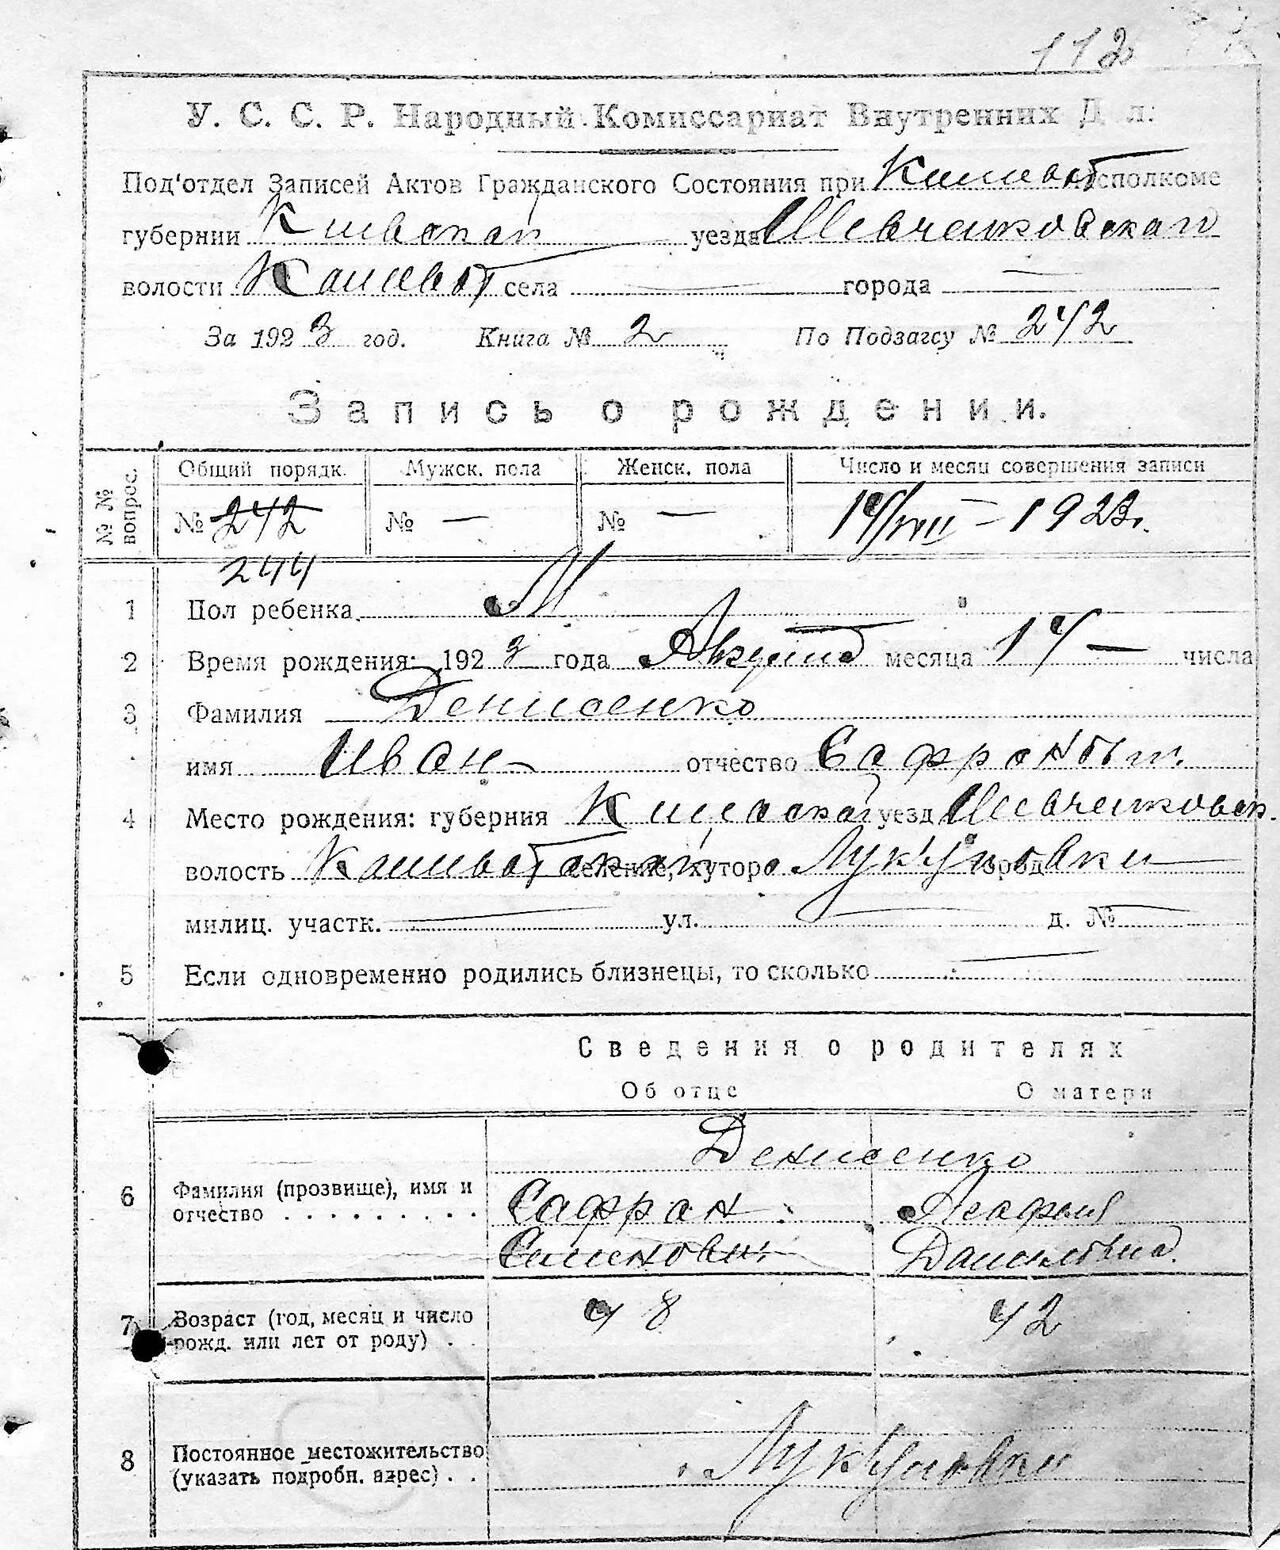 112
У. С. С. Р. Народный Комиссариат Внутренних Дел:
Под'отдел Записей Актов Гражданского Состояния при исполкоме
губернии Киевской уезда Шевченковской
волости села города
За 1923 год. Книга № 2 По Подзагсу № 242
Запись о рождении.
№ № вопрос. Общий порядк. Мужск. пола Женск. пола Число и месяц совершения записи
№ 242 № — № — 14/VIII – 1923г.
244
1 Пол ребенка М
2 Время рождения: 1923 года Августа месяца 14 — числа
3 Фамилия Денисенко
имя Иван отчество Сафронов.
4 Место рождения: губерния Киевская уезд Шевченковск.
волость селение, хутор город
милиц. участк. — ул. — д. № —
5 Если одновременно родились близнецы, то сколько —
Сведения о родителях
Об отце О матери
Денисенко
6 Фамилия (прозвище), имя и Сафрон Агафия
отчество . . . . . . . . . Семенович Даниловна
7 Возраст (год, месяц и число 48 42
рожд. или лет от роду) . .
8 Постоянное местожительство
(указать подробн. адрес) . .